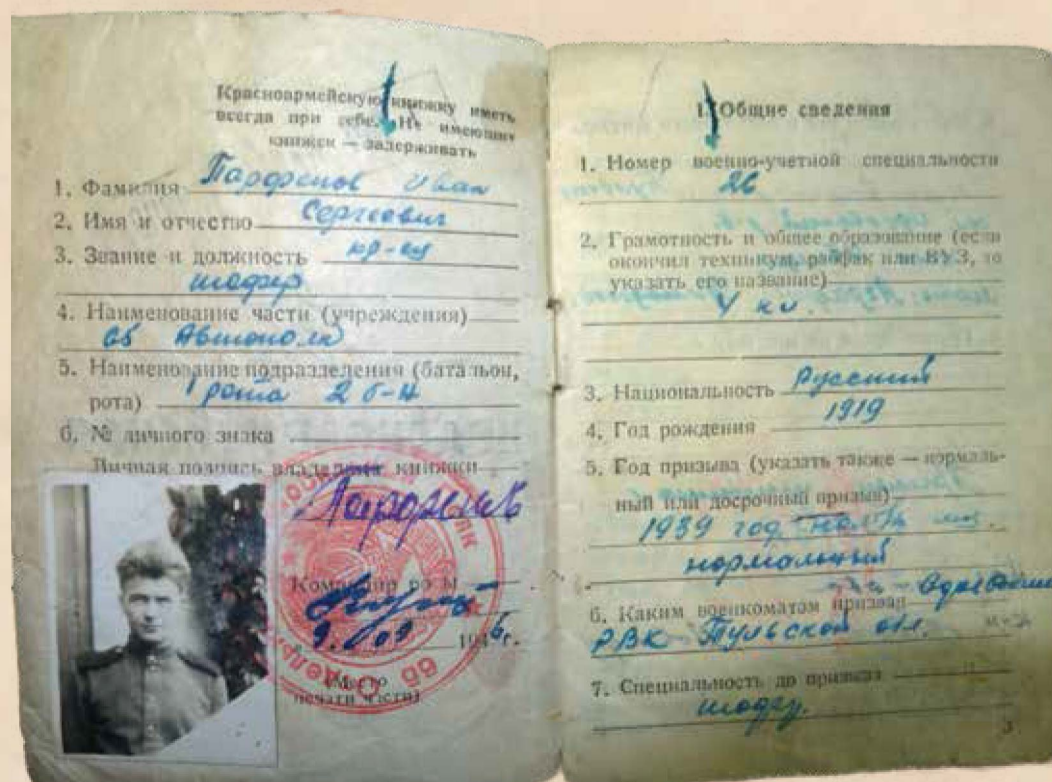 Красноармейскую книжку иметь
всегда при себе. Не имеющих
книжек — задерживать
1. Фамилия Парфенов Иван
2. Имя и отчество Сергеевич
3. Звание и должность кр-ец
шофер
4. Наименование части (учреждения)
66 Автополк
5. Наименование подразделения (батальон,
рота) 1 рота 2 б-н
6. № личного знака
Личная подпись владельца книжки
Парфенов
Командир роты
1946 г.
(Место
печати части)
I. Общие сведения
1. Номер военно-учетной специальности
26
2. Грамотность и общее образование (если
окончил техникум, рабфак или ВУЗ, то
указать его название)
4 кл.
3. Национальность Русский
4. Год рождения 1919
5. Год призыва (указать также — нормаль-
ный или досрочный призыв)
1939 год
нормальный
6. Каким военкоматом призван
РВК Тульской обл.
7. Специальность до призыва
шофер.
3